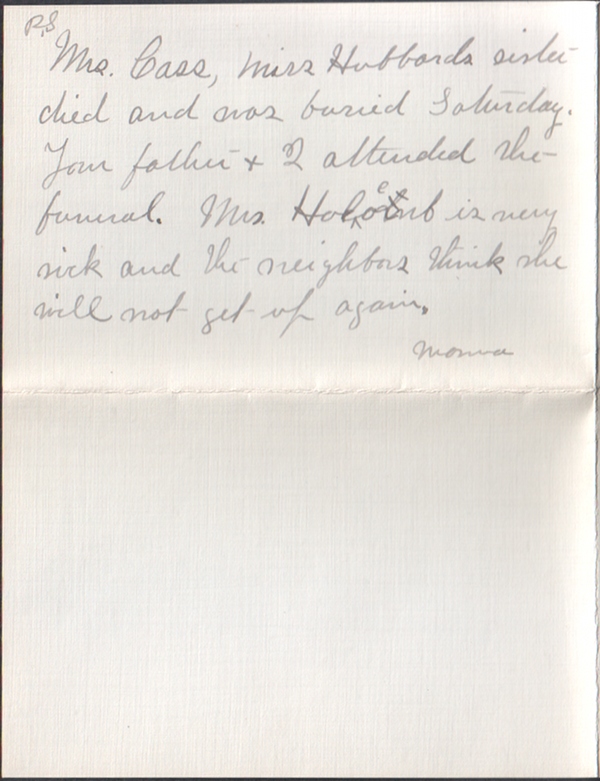 P.S
Mrs. Cass, Miss Hubbards sister
died and was buried Saturday.
Your father & I attended the
funeral. Mrs. is very
sick and the neighbors think she
will not get up again.
Momma